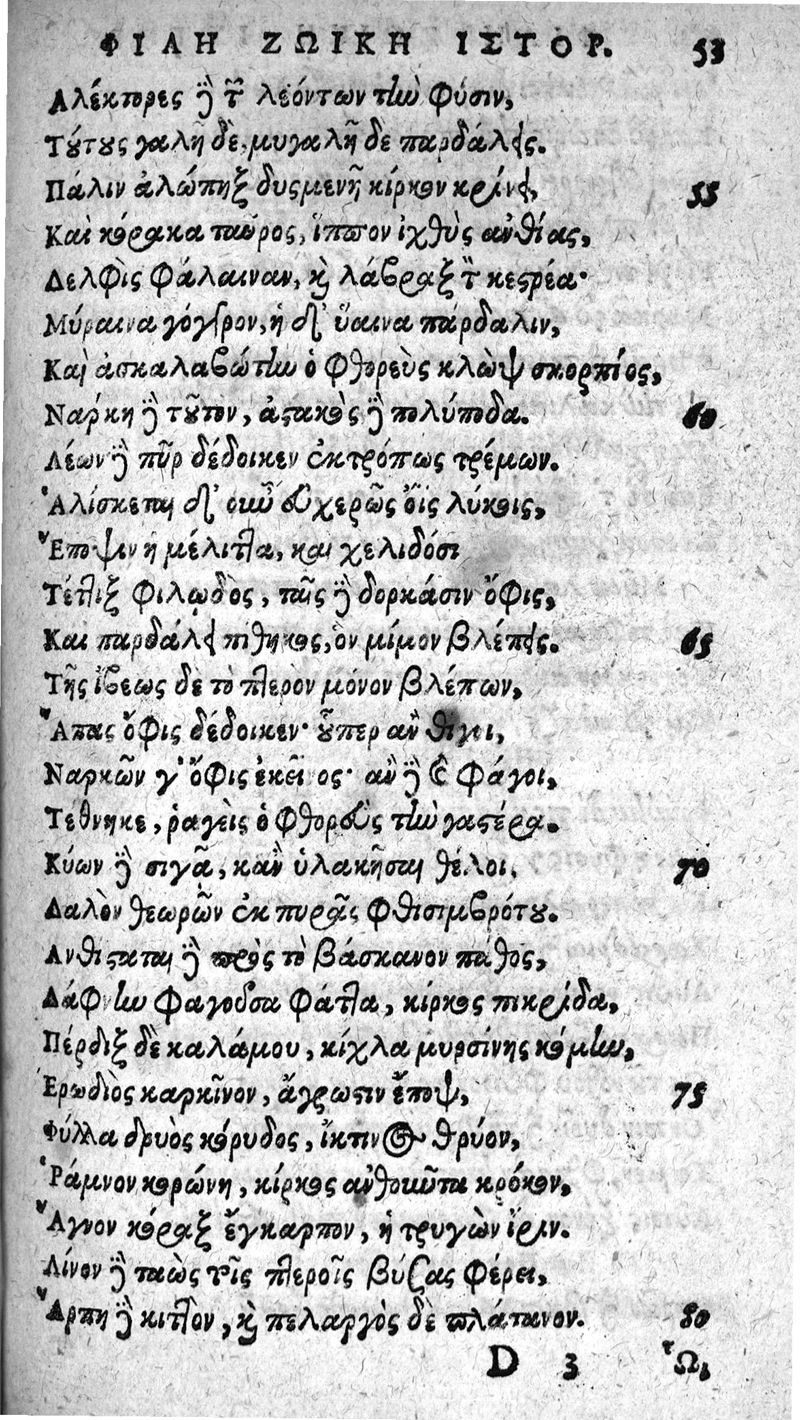 ΦΙΛΗ ΖΩΙΚΗ ΙΣΤΟΡ. 53
Αλέκτορες ἢ τ͂ λεόντων τὴν φύσιν,
Τούτους γαλῆ δὲ, μυγαλῆ δὲ παρδάλεις.
Πάλιν ἀλώπηξ δυσμενῆ κίρκον κρίνει, 55
Καὶ κόρακα ταῦρος, ἵππον ἰχθὺς ἀνθίας,
Δελφὶς φάλαιναν, καὶ λάβραξ τ͂ κεστρέα·
Μύραινα γόγγρον, ἡ δ' ὕαινα πάρδαλιν,
Καὶ ἀσκαλαβώτην ὁ φθορεὺς κλὼψ σκορπίος,
Νάρκη δὲ τοῦτον, ἀστακὸς δὲ πολύποδα. 60
Λέων δὲ πῦρ δέδοικεν ἐκτρόπως τρέμων.
Ἁλίσκεται δ' οὖν δυσχερῶς ὄϊς λύκοις,
Ἔποψιν ἡ μέλιττα, καὶ χελιδόσι
Τέττιξ φιλῳδὸς, ταῖς δὲ δορκάσιν ὄφις,
Καὶ παρδάλει πίθηκος, ὃν μῖμον βλέπεις. 65
Τῆς ἴβεως δὲ τὸ πτερὸν μόνον βλέπων,
Ἅπας ὄφις δέδοικεν· ᾧπερ ἂν θίγοι,
Ναρκῶν γ' ὄφις ἐκεῖνος· ἂν δὲ καὶ φάγοι,
Τέθνηκε, ῥαγεὶς ὁ φθορεὺς τὴν γαστέρα.
Κύων δὲ σιγᾷ, κἂν ὑλακῆσαι θέλοι, 70
Δαλὸν θεωρῶν ἐκ πυρᾶς φθισιμβρότου.
Ανθίσταται δὲ πρὸς τὸ βάσκανον πάθος,
Δάφνην φαγοῦσα φάττα, κίρκος πικρίδα,
Πέρδιξ δὲ καλάμου, κίχλα μυρσίνης κόμην,
Ἐρωδιὸς καρκῖνον, ἄγρωσιν ἔποψ, 75
Φύλλα δρυὸς κόρυδος, ἴκτινος θρύον,
Ῥάμνον κορώνη, κίρκος ἀνθοῦντα κρόκον,
Ἄγνον κόραξ ἔγκαρπον, ἡ τρυγὼν ἶριν.
Λίνον δὲ ταὼς τοῖς πτεροῖς βύζας φέρει,
Ἅρπη δὲ κιττὸν, καὶ πελαργὸς δὲ πλάτανον. 80
D 3 Ὧι